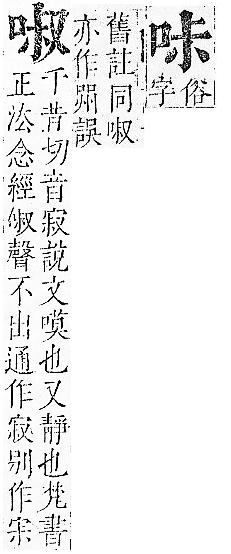 俗
字
舊註同𠴫
亦作誤
𠴫
千昔切音寂說文嗼也又靜也梵書
正法念經𠴫聲不出通作寂别作